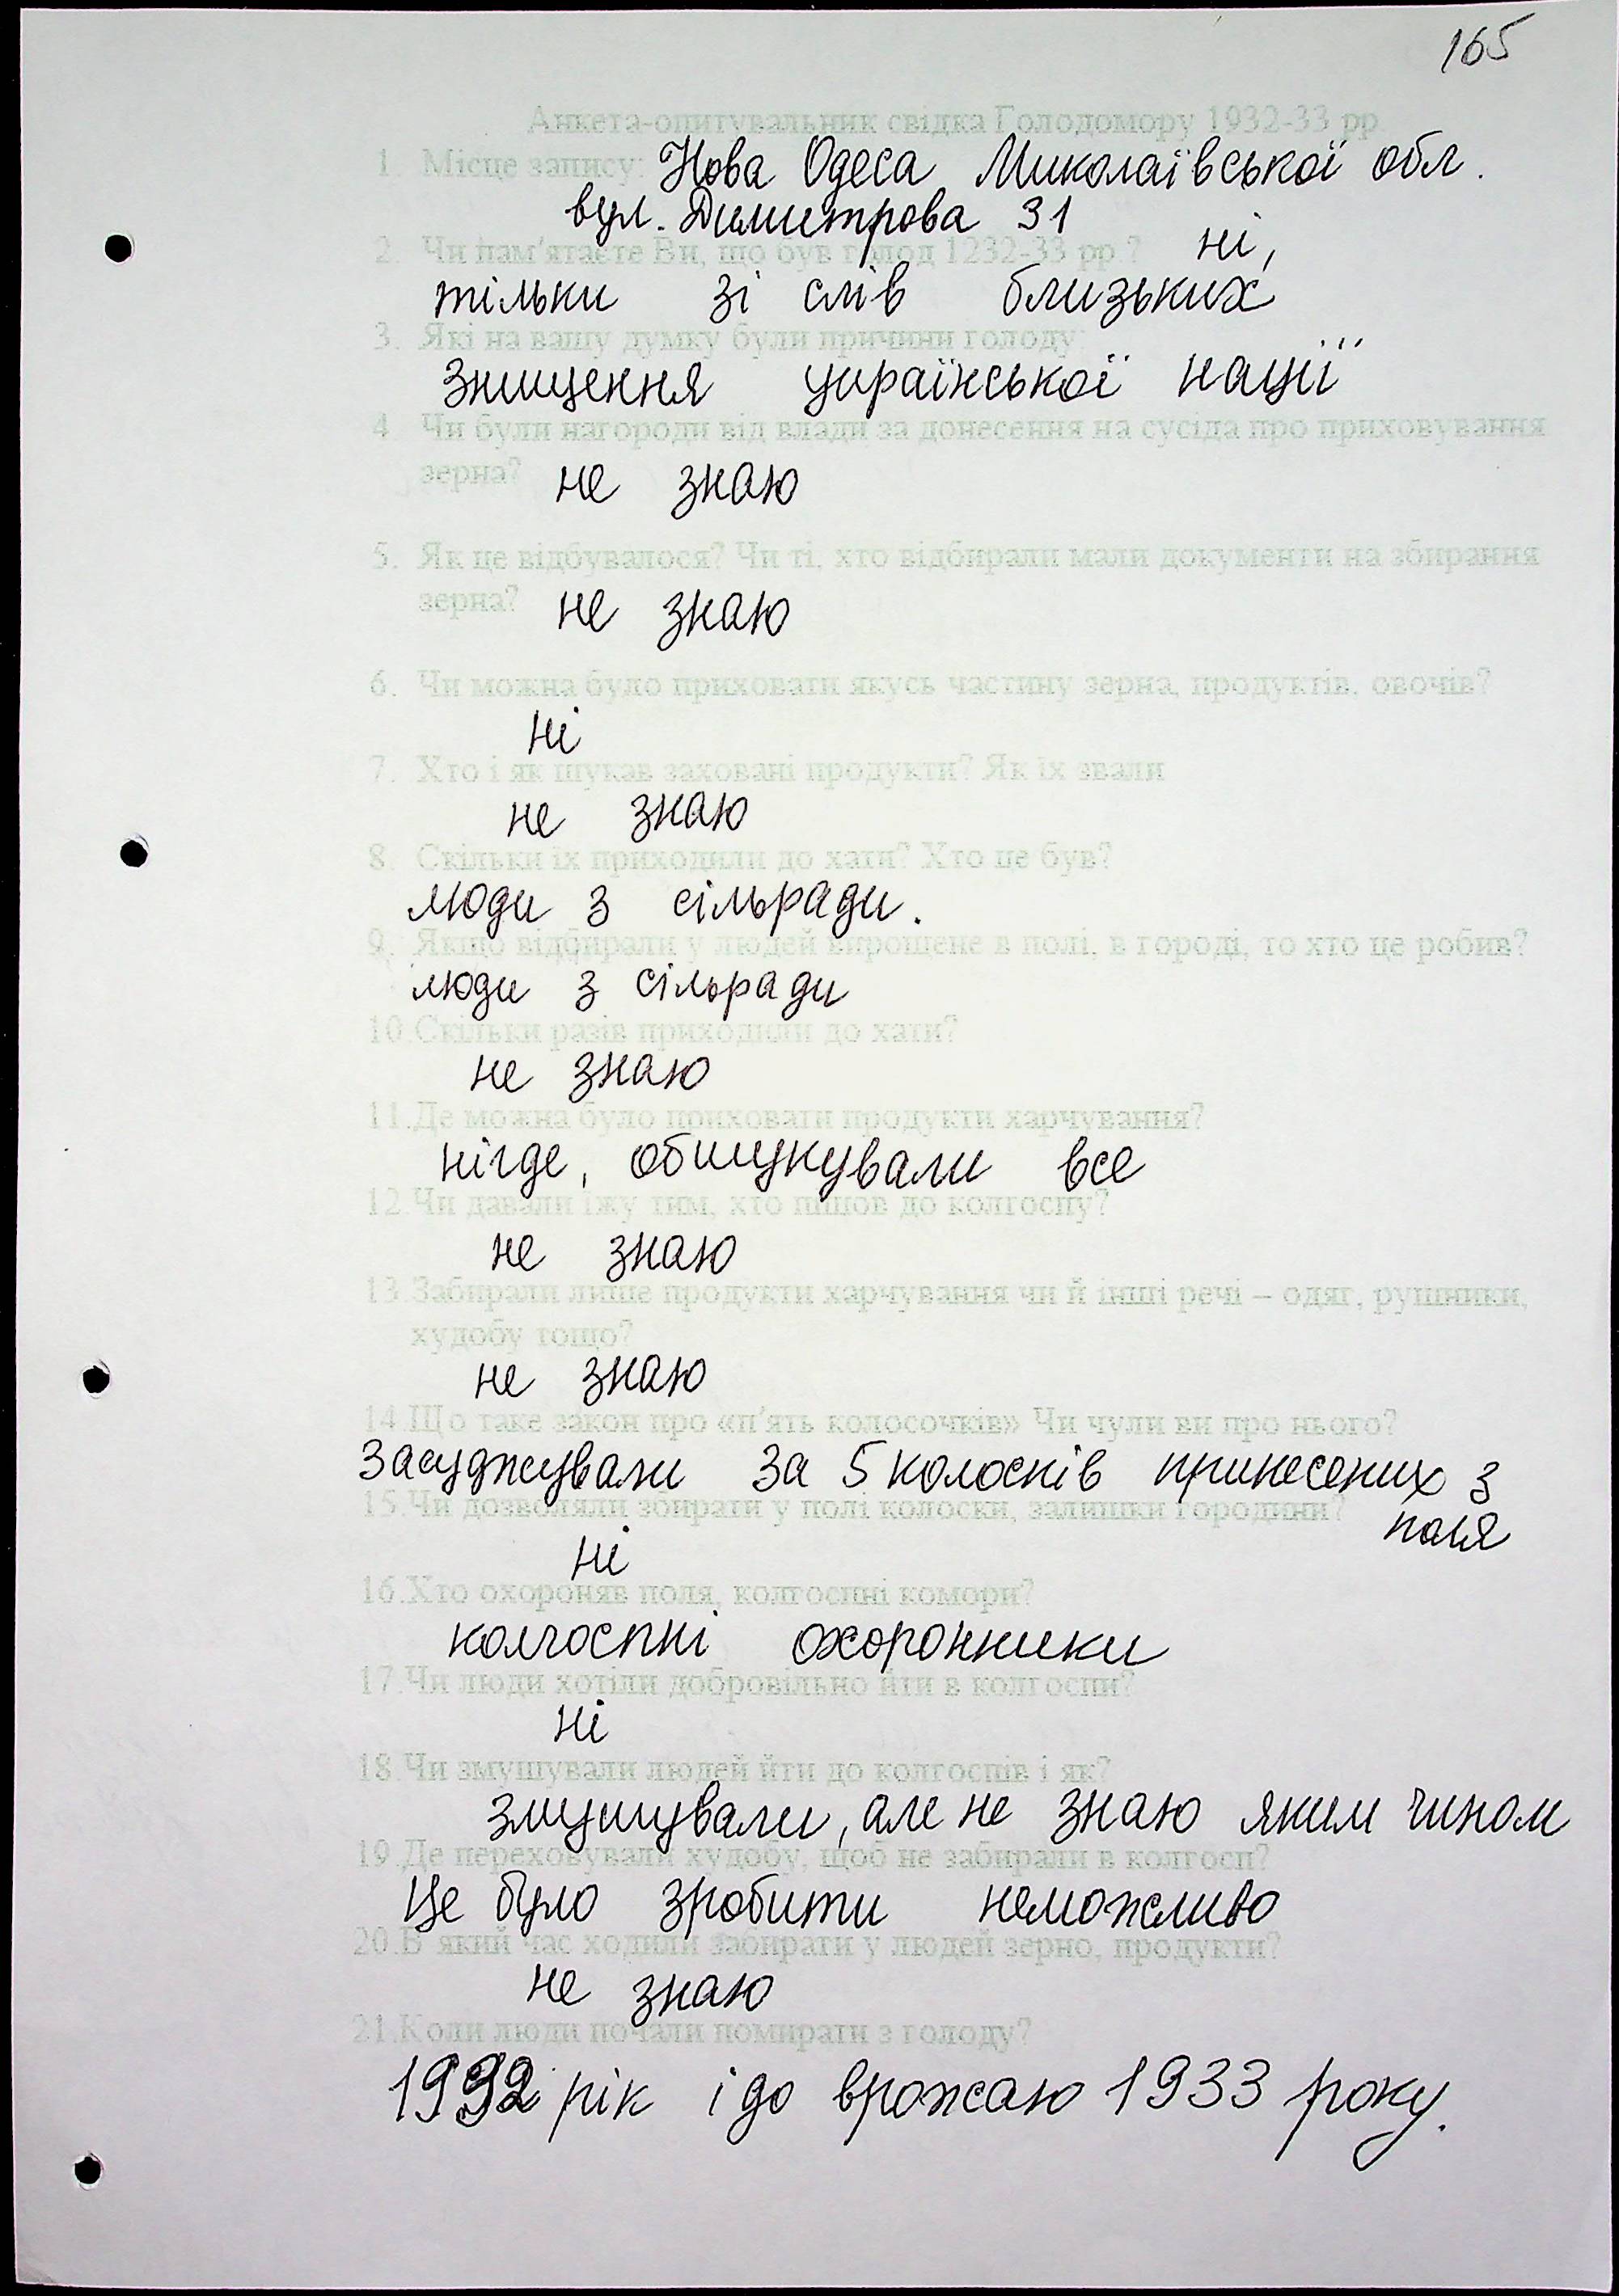 165
Анкета-опитувальник свідка Голодомору 1932-33 рр.
1. Місце запису: Нова Одеса Миколаївської обл.
вул. Димитрова 31
2. Чи пам'ятаєте Ви, що був голод 1232-33 рр.? ні,
тільки зі слів близьких
3. Які на вашу думку були причини голоду:
знищення української нації
4. Чи були нагороди від влади за донесення на сусіда про приховування
зерна? не знаю
5. Як це відбувалося? Чи ті, хто відбирали мали документи на збирання
зерна? не знаю
6. Чи можна було приховати якусь частину зерна, продуктів, овочів?
ні
7. Хто і як шукав заховані продукти? Як їх звали
не знаю
8. Скільки їх приходили до хати? Хто це був?
люди з сільради.
9. Якщо відбирали у людей вирощене в полі, в городі, то хто це робив?
люди з сільради
10.Скільки разів приходили до хати?
не знаю
11.Де можна було приховати продукти харчування?
нігде, обшукували все
12.Чи давали їжу тим, хто пішов до колгоспу?
не знаю
13.Забирали лише продукти харчування чи й інші речі – одяг, рушники,
худобу тощо?
не знаю
14.Що таке закон про «п'ять колосочків» Чи чули ви про нього?
засуджували за 5 колосків принесених з
поля
15.Чи дозволяли збирати у полі колоски, залишки городини?
ні
16.Хто охороняв поля, колгоспні комори?
колгоспні охоронники
17.Чи люди хотіли добровільно йти в колгоспи?
ні
18.Чи змушували людей йти до колгоспів і як?
змушували, але не знаю яким чином
19.Де переховували худобу, щоб не забирали в колгосп?
Це було зробити неможливо
20.В який час ходили забирати у людей зерно, продукти?
не знаю
21.Коли люди почали помирати з голоду?
1932 рік і до врожаю 1933 року.